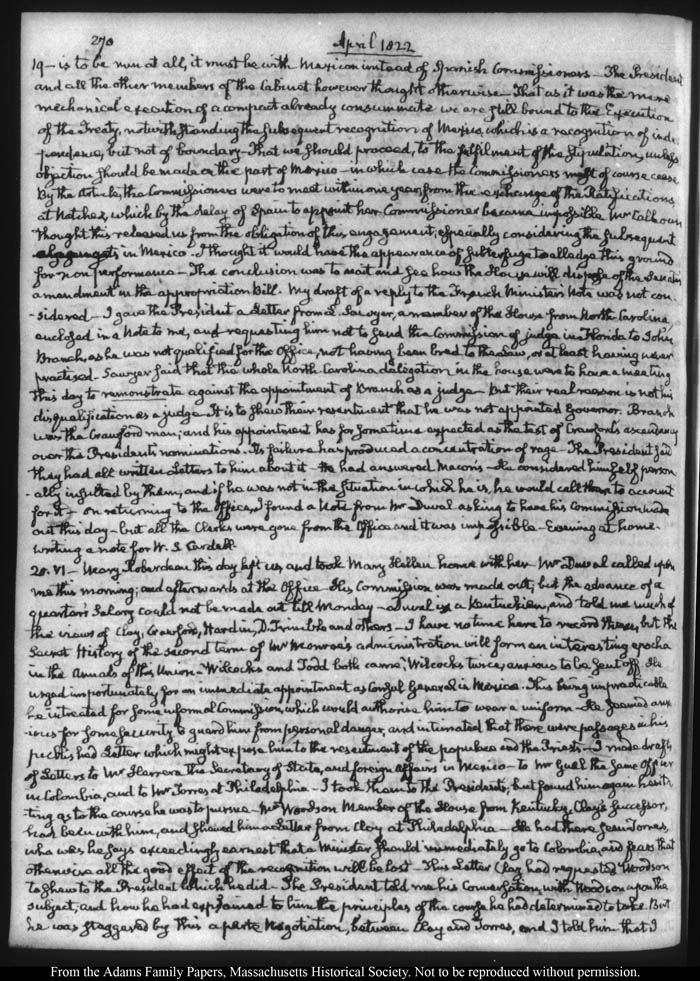 270
April 1822
19 – is to be run at all, it must be with Mexican instead of Spanish Commissioners – The President
and all the other members of the Cabinet however thought otherwise – That as it was the mere
mechanical execution of a compact already consummate we are still bound to the Execution
of the Treaty, notwithstanding the subsequent recognition of Mexico, which is a recognition of inde-
pendence, but not of boundary – That we should proceed, to the fulfilment of the stipulation, unless
objection should be made on the part of Mexico – in which case the Commissioners must of course cease
By the Article, the Commissioners were to meet within one year from the exchange of the Ratifications
at Natchez, which by the delay of Spain to appoint her Commissioner became impossible Mr Calhoun
thought this released us from the obligation of this engagement, especially considering the subsequent
in Mexico – I thought it would have the appearance of subterfuge to alledge this ground
for non performance – The conclusion was to wait and see how the House will dispose of the Senate's
amendment in the appropriation Bill. My draft of a reply to the French Minister's Note was not con-
-sidered – I gave the President a Letter from L. Sawyer, a member of the House from North Carolina
enclosed in a Note to me, and requesting him not to send the Commission of judge in Florida to John
Branch, as he was not qualified for the Office, not having been bred to the Law, or at least having never
practised – Sawyer said that the whole North Carolina delegation in the house were to have a meeting
this day to remonstrate against the appointment of Branch as a judge – But their real reason is not his
disqualification as a judge – It is to shew their resentment that he was not appointed Governor. Branch
was the Crawford man; and his appointment has for some time expected as the test of Crawford's ascendency
over the President's nominations – Its failure has produced a concentration of rage – The President said
they had all written Letters to him about it – He had answered Macon's – He considered himself person
-ally insulted by them, and if he was not in the situation in which he is, he would call them to account
for it – on returning to the Office, I found a Note from Mr Duval asking to have his Commission made
out this day – but all the Clerks were gone from the Office and it was impossible – Evening at home –
writing a note for W. S. Cardell.
20. VI – Mary Roberdeau this day left us, and took Mary Hellen home with her – Mr Duval called upon
me this morning; and afterwards at the Office – His Commission was made out; but the advance of a
quarter's Salary could not be made out till Monday – Duval is a Kentuckian, and told me much of
the views of Clay, Crawford, Hardin, D. Trimble and others – I have no time here to record them, but the
Secret History of the second term of Mr Monroe's administration will form an interesting epocha
in the Annals of this Union – Wilcocks and Todd both came; Wilcocks twice, anxious to be sent off. He
urged importunately for an immediate appointment as Consul General in Mexico. This being impracticable
he intreated for some informal Commission, which would authorise him to wear a uniform – He seemed anx
-ious for some security to guard him from personal danger, and intimated that there were passages in his
published Letter which might expose him to the resentment of the populace and the Priests – I made drafts
of Letters to Mr Herrera the Secretary of State, and foreign affairs in Mexico – to Mr Gual the same Officer
in Colombia, and to Mr Torres at Philadelphia – I took them to the President's, but found him again hesita-
ting as to the course he was to pursue – Mr Woodson Member of the House from Kentucky, Clay's successor,
had been with him, and shewed him a Letter from Clay at Philadelphia – He had there seen Torres,
who was he says exceedingly earnest that a Minister should immediately go to Colombia, and fears that
otherwise all the good effect of the recognition will be lost – This Letter Clay had requested Woodson
to shew to the President which he did – The President told me his Conversation with Woodson upon the
subject; and how he had explained to him the principles of the course he had determined to take. But
he was staggered by this a parte Negotiation, between Clay and Torres, and I told him that I
From the Adams Family Papers, Massachusetts Historical Society. Not to be reproduced without permission.